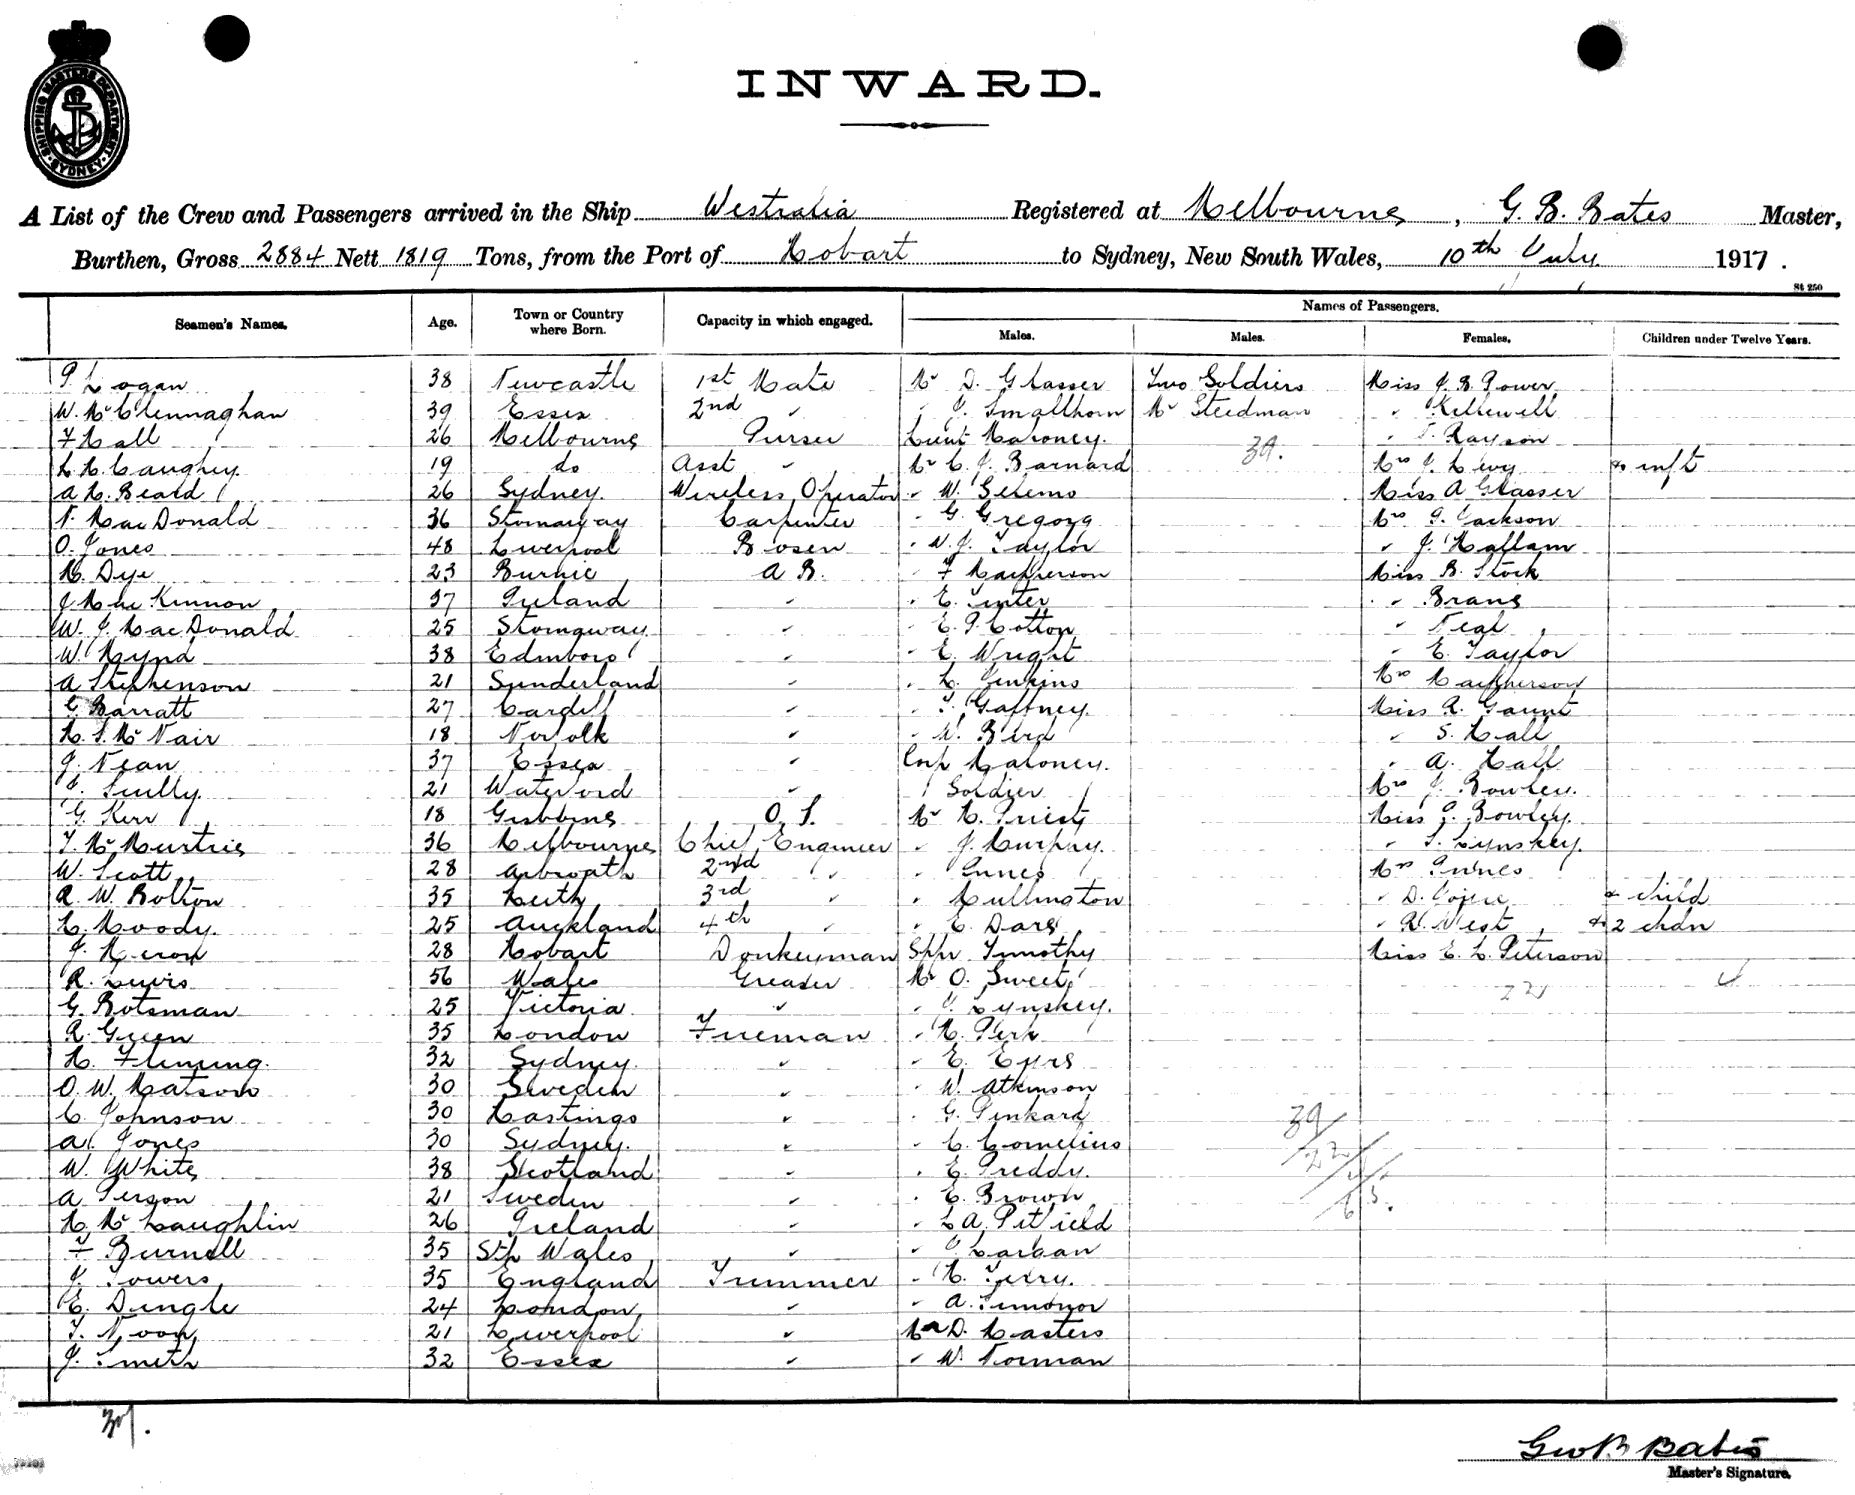 SHIPPING MASTERS DEPARTMENT
SYDNEY
INWARD.
A List of the Crew and Passengers arrived in the Ship Westralia Registered at Melbourne, G. B. Bates Master,
Burthen, Gross 2884 Nett 1819 Tons, from the Port of Hobart to Sydney, New South Wales, 10th July 1917.
St 250
Seamen's Names. Age. Town or Country where Born. Capacity in which engaged. Names of Passengers.
Males. Males. Females. Children under Twelve Years.
P. Logan 38 Newcastle 1st Mate Mr D. Glasser Two Soldiers Miss J. B. Power
W. McClennaghan 39 Essex 2nd " " J. Smallhorn Mr Steedman " Kellewell
F Hall 26 Melbourne Purser Lieut Maloney. " Rayson
H. H. Caughey 19 do Asst " Mr C. J. Barnard 39. Mrs J. Levy & inft
A. H. Beard 26 Sydney. Wireless Operator " W. Selems Miss A Glasser
N. MacDonald 36 Stornaway Carpenter " G. Gregory Mrs G. Jackson
O. Jones 48 Liverpool Bosen " W. J. Taylor " J. Hallam
H. Dye 23 Burnie A B. " F Macpherson Miss B. Stock
J. MacKinnon 37 Ireland " " E. " Brans
W. J. MacDonald 25 Stornaway " " E. P. Cotton " Neal
W. Hynd 38 Edinboro " " E. Wright " E. Taylor
A Stephenson 21 Sunderland " " L. Jenkins Mrs Macpherson
Barratt 27 Cardiff " " T. Gaffney. Miss R. Gaunt
H. S. McNair 18 Norfolk " " W. Bird " S. Hall
J. Nean 37 Essex " Corp Maloney. " A. Hall
Scully. 21 Waterford " Soldier Mrs J. Bowley.
G. Kerr 18 Gisborne O. S. Mr H. Priest Miss G. Bowley.
T. McMurtrie 36 Melbourne Chief Engineer " J. Murphy. " Lynskey.
W. Scott 28 Arbroath 2nd " " Innes Mrs Innes
R. W. Bolton 35 Leith 3rd " " Cullington " D. & child
H. Moody. 25 Auckland 4th " " E. Dare " R. West & 2 chdn
J. Heron 28 Hobart Donkeyman Sppr Timothy Miss E. L. Peterson
R. Lewis 56 Wales Greaser Mr O. Sweet 4
G. Botsman 25 Victoria " " Lynskey. 22
R. Green 35 London Fireman " H. Perk
H. Fleming. 32 Sydney. " " E. Eyre
O. W. Matson 30 Sweden " " W. Atkinson
C. Johnson 30 Hastings " " G. Penkard 39
A. Jones 30 Sydney. " " C. Cornelius 22
W. White 38 Scotland " " E. Preddy. 4
A Person 21 Sweden " " E. Brown 65.
H. McLaughlin 26 Ireland " " L A. Pitfield
F Burnell 35 Sth Wales "
J. Towers 35 England Trimmer " H. Terry.
E. Dingle 24 London " " A.
T. Noon 21 Liverpool " Mr D. Masters
J. Smith 32 Essex " " W. Norman
37.
Geo B Bates
Master's Signature.